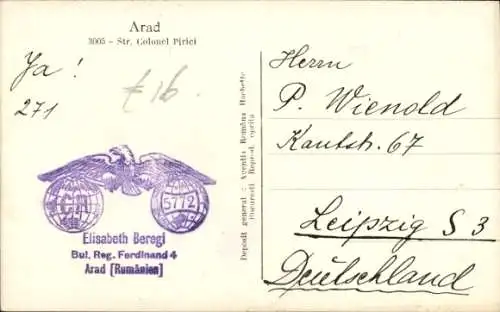 Arad
3005 - Str. Colonel Pirici
Ya!
271
Herrn
P. Wienold
Kantstr. 67
Leipzig S 3
Deutschland
Depozit general: Agenția Română Hachette
București Reprod. oprită
5772
Elisabeth Beregi
Bul. Reg. Ferdinand 4
Arad [Rumänien]